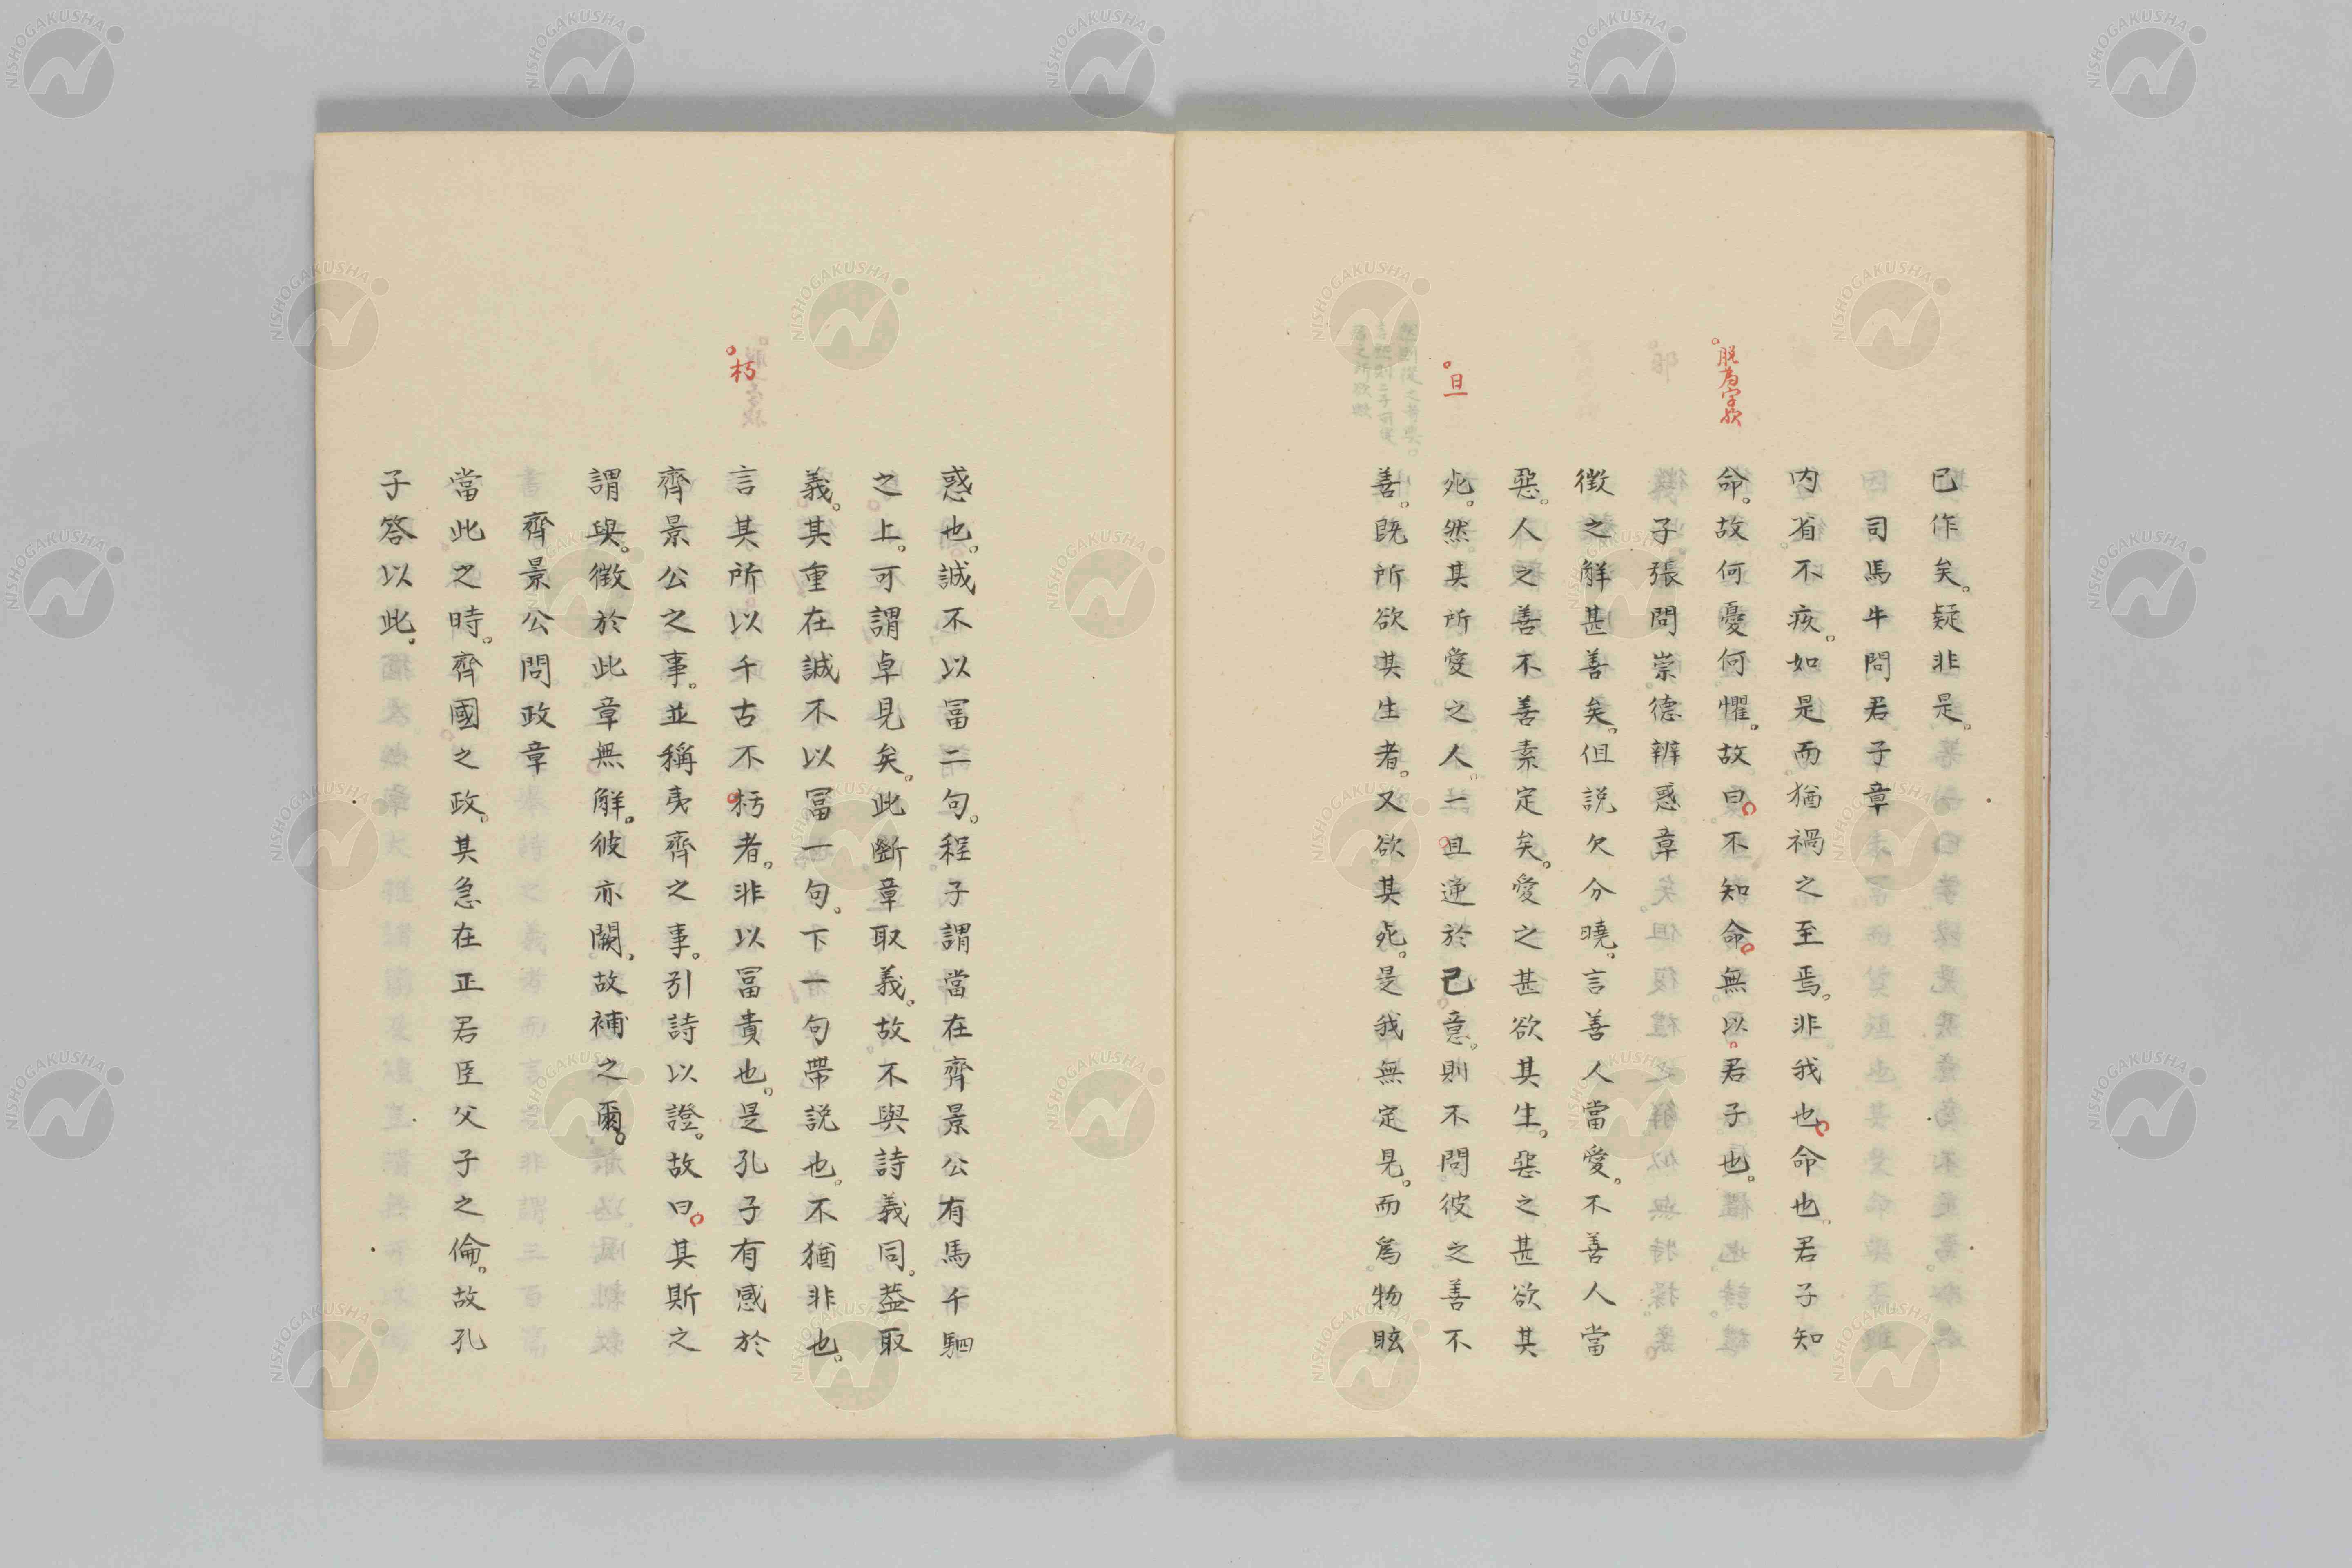 已作矣。疑非是。
司馬牛問君子章
内省不疚。如是而猶禍之至焉。非我也。命也。君子知
命。故何憂何懼。故曰。不知命。無以君子也。
脱為字歟
子張問崇德辨惑章
徴之觧甚善矣。但説欠分曉。言善人當愛。不善人當
惡。人之善不善素定矣。愛之甚欲其生。惡之甚欲其
死。然其所愛之人。一且逆於己意。則不問彼之善不
旦
善。既所欲其生者。又欲其死。是我無定見。而爲物眩
惑也。誠不以冨二句。程子謂當在齊景公有馬千駟
之上。可謂卓見矣。此斷章取義。故不與詩義同。葢取
義。其重在誠不以冨一句。下一句帶説也。不猶非也。
言其所以千古不杇者。非以冨貴也。是孔子有感於
朽
齊景公之事。並稱夷齊之事。引詩以證。故曰。其斯之
謂與。徴於此章無觧。彼亦闕。故補之爾。
齊景公問政章
當此之時。齊國之政。其急在正君臣父子之倫。故孔
子答以此。